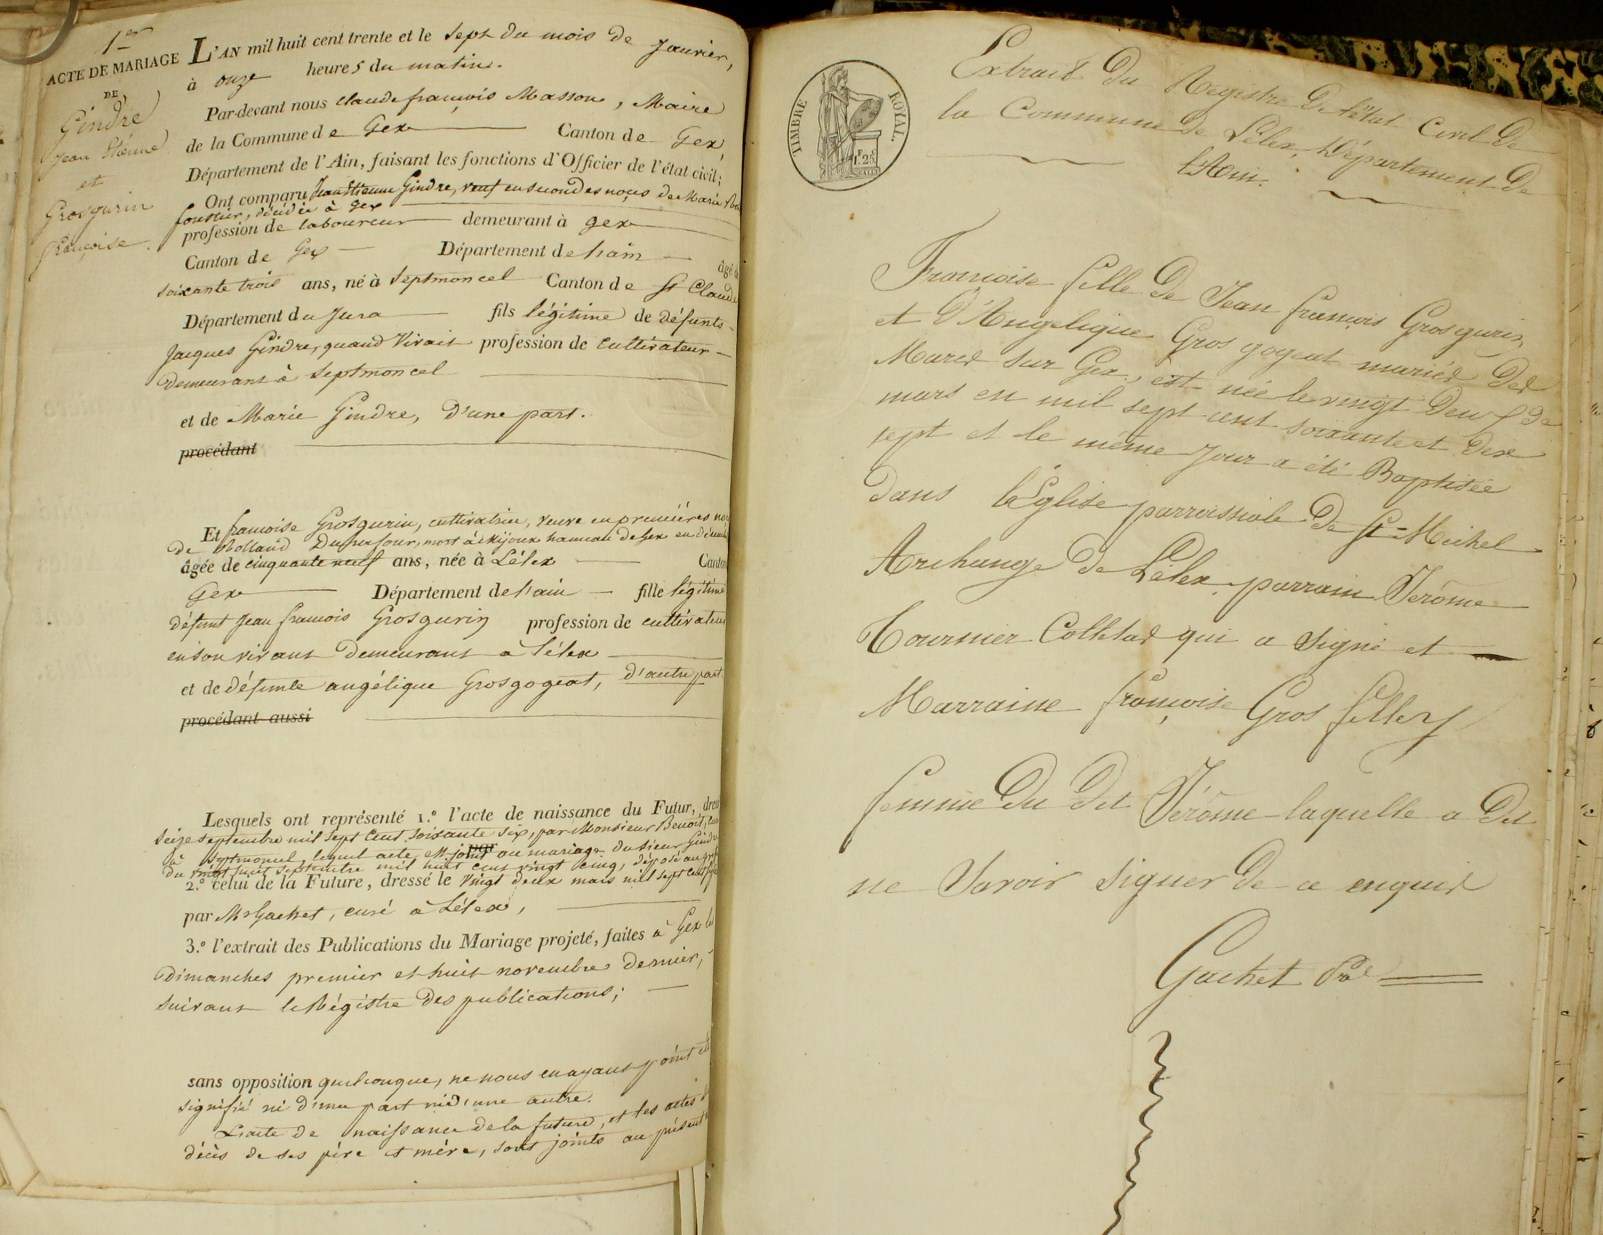 1er
ACTE DE MARIAGE
DE
Gindre
Jean Etienne
et
Grosgurin
françoise.
L'AN mil huit cent trente et le sept du mois de Janvier,
à onze heures du matin.
Par-devant nous claude françois Masson, Maire
de la Commune de Gex Canton de Gex,
Département de l'Ain, faisant les fonctions d'Officier de l'état civil;
Ont comparu Jean Etienne Gindre, veuf en secondes noces de Marie
décédée à gex
profession de laboureur demeurant à gex
Canton de Gex Département de l'ain âgé de
soixante trois ans, né à Septmoncel Canton de St Claude
Département du Jura fils légitime de défunts
Jacques Gindre, quand Vivait profession de cultivateur
demeurant à Septmoncel
et de Marie Gindre, d'une part.
procédant
Et françoise Grosgurin, cultivatrice, veuve en premières
de Rolland mort à hameau de Gex en
âgée de cinquante neuf ans, née à Lélex Canton
Gex Département de l'ain fille légitime
défunt Jean françois Grosgurin profession de cultivateur
en son vivant demeurant à Lélex
et de défunte angélique Grosgogeat, d'autre part
procédant aussi
Lesquels ont représenté 1.º l'acte de naissance du Futur,
seize septembre mil sept cent soixante six, par Monsieur Benoit,
à Septmoncel, lequel acte est joint au mariage du sieur Gindre
du vingt septembre mil huit cent vingt cinq, déposé au
2.º celui de la Future, dressé le vingt deux mars mil sept cent
par Mr Gachet, curé à Lélex,
3.º l'extrait des Publications du Mariage projeté, faites à Gex les
dimanches premier et huit novembre dernier,
suivant le Régistre des publications;
sans opposition quelconque, ne nous en ayant point été
signifié ni d'une part ni d'une autre.
L'acte de naissance de la future, et les actes de
décès de ses père et mère, sont joints au présent
TIMBRE ROYAL.
1F 25c
Extrait du Registre de l'état Civil de
la Commune de Lélex, Département de
l'Ain.
Françoise fille de Jean françois Grosgurin
et d'Angelique Gros gogeat mariés des
Mares sur Gex, est née le vingt deux de
mars en mil sept cent soixante et dix
sept et le même jour a été Baptisée
dans l'Eglise parroissiale de St Michel
Archange de Lélex, parrain Jerôme
Tournier Colletad qui a signé et
Marraine françoise Gros felley
femme du dit Jérôme laquelle a dit
ne savoir signer de ce enquis
Gachet